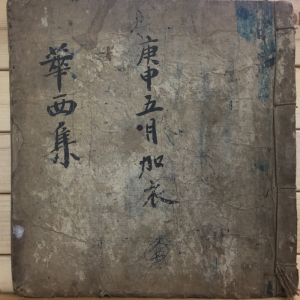 庚申五月加衣
華西集